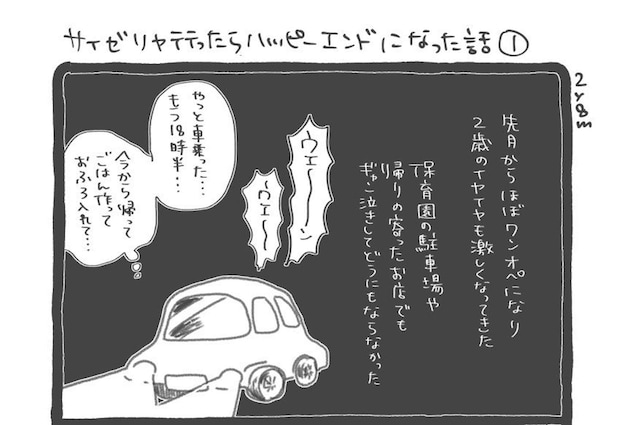 サイゼリヤ行ったらハッピーエンドになった話①
2y8m
先月からほぼワンオペになり
2歳のイヤイヤも激しくなってきた
保育園の駐車場や
帰りの寄ったお店でも
ギャン泣きしてどうにもならなかった
ウェーーン
〜ウェ〜〜
やっと車乗った…
もう18時半…
今から帰って
ごはん作って
おふろ入れて…